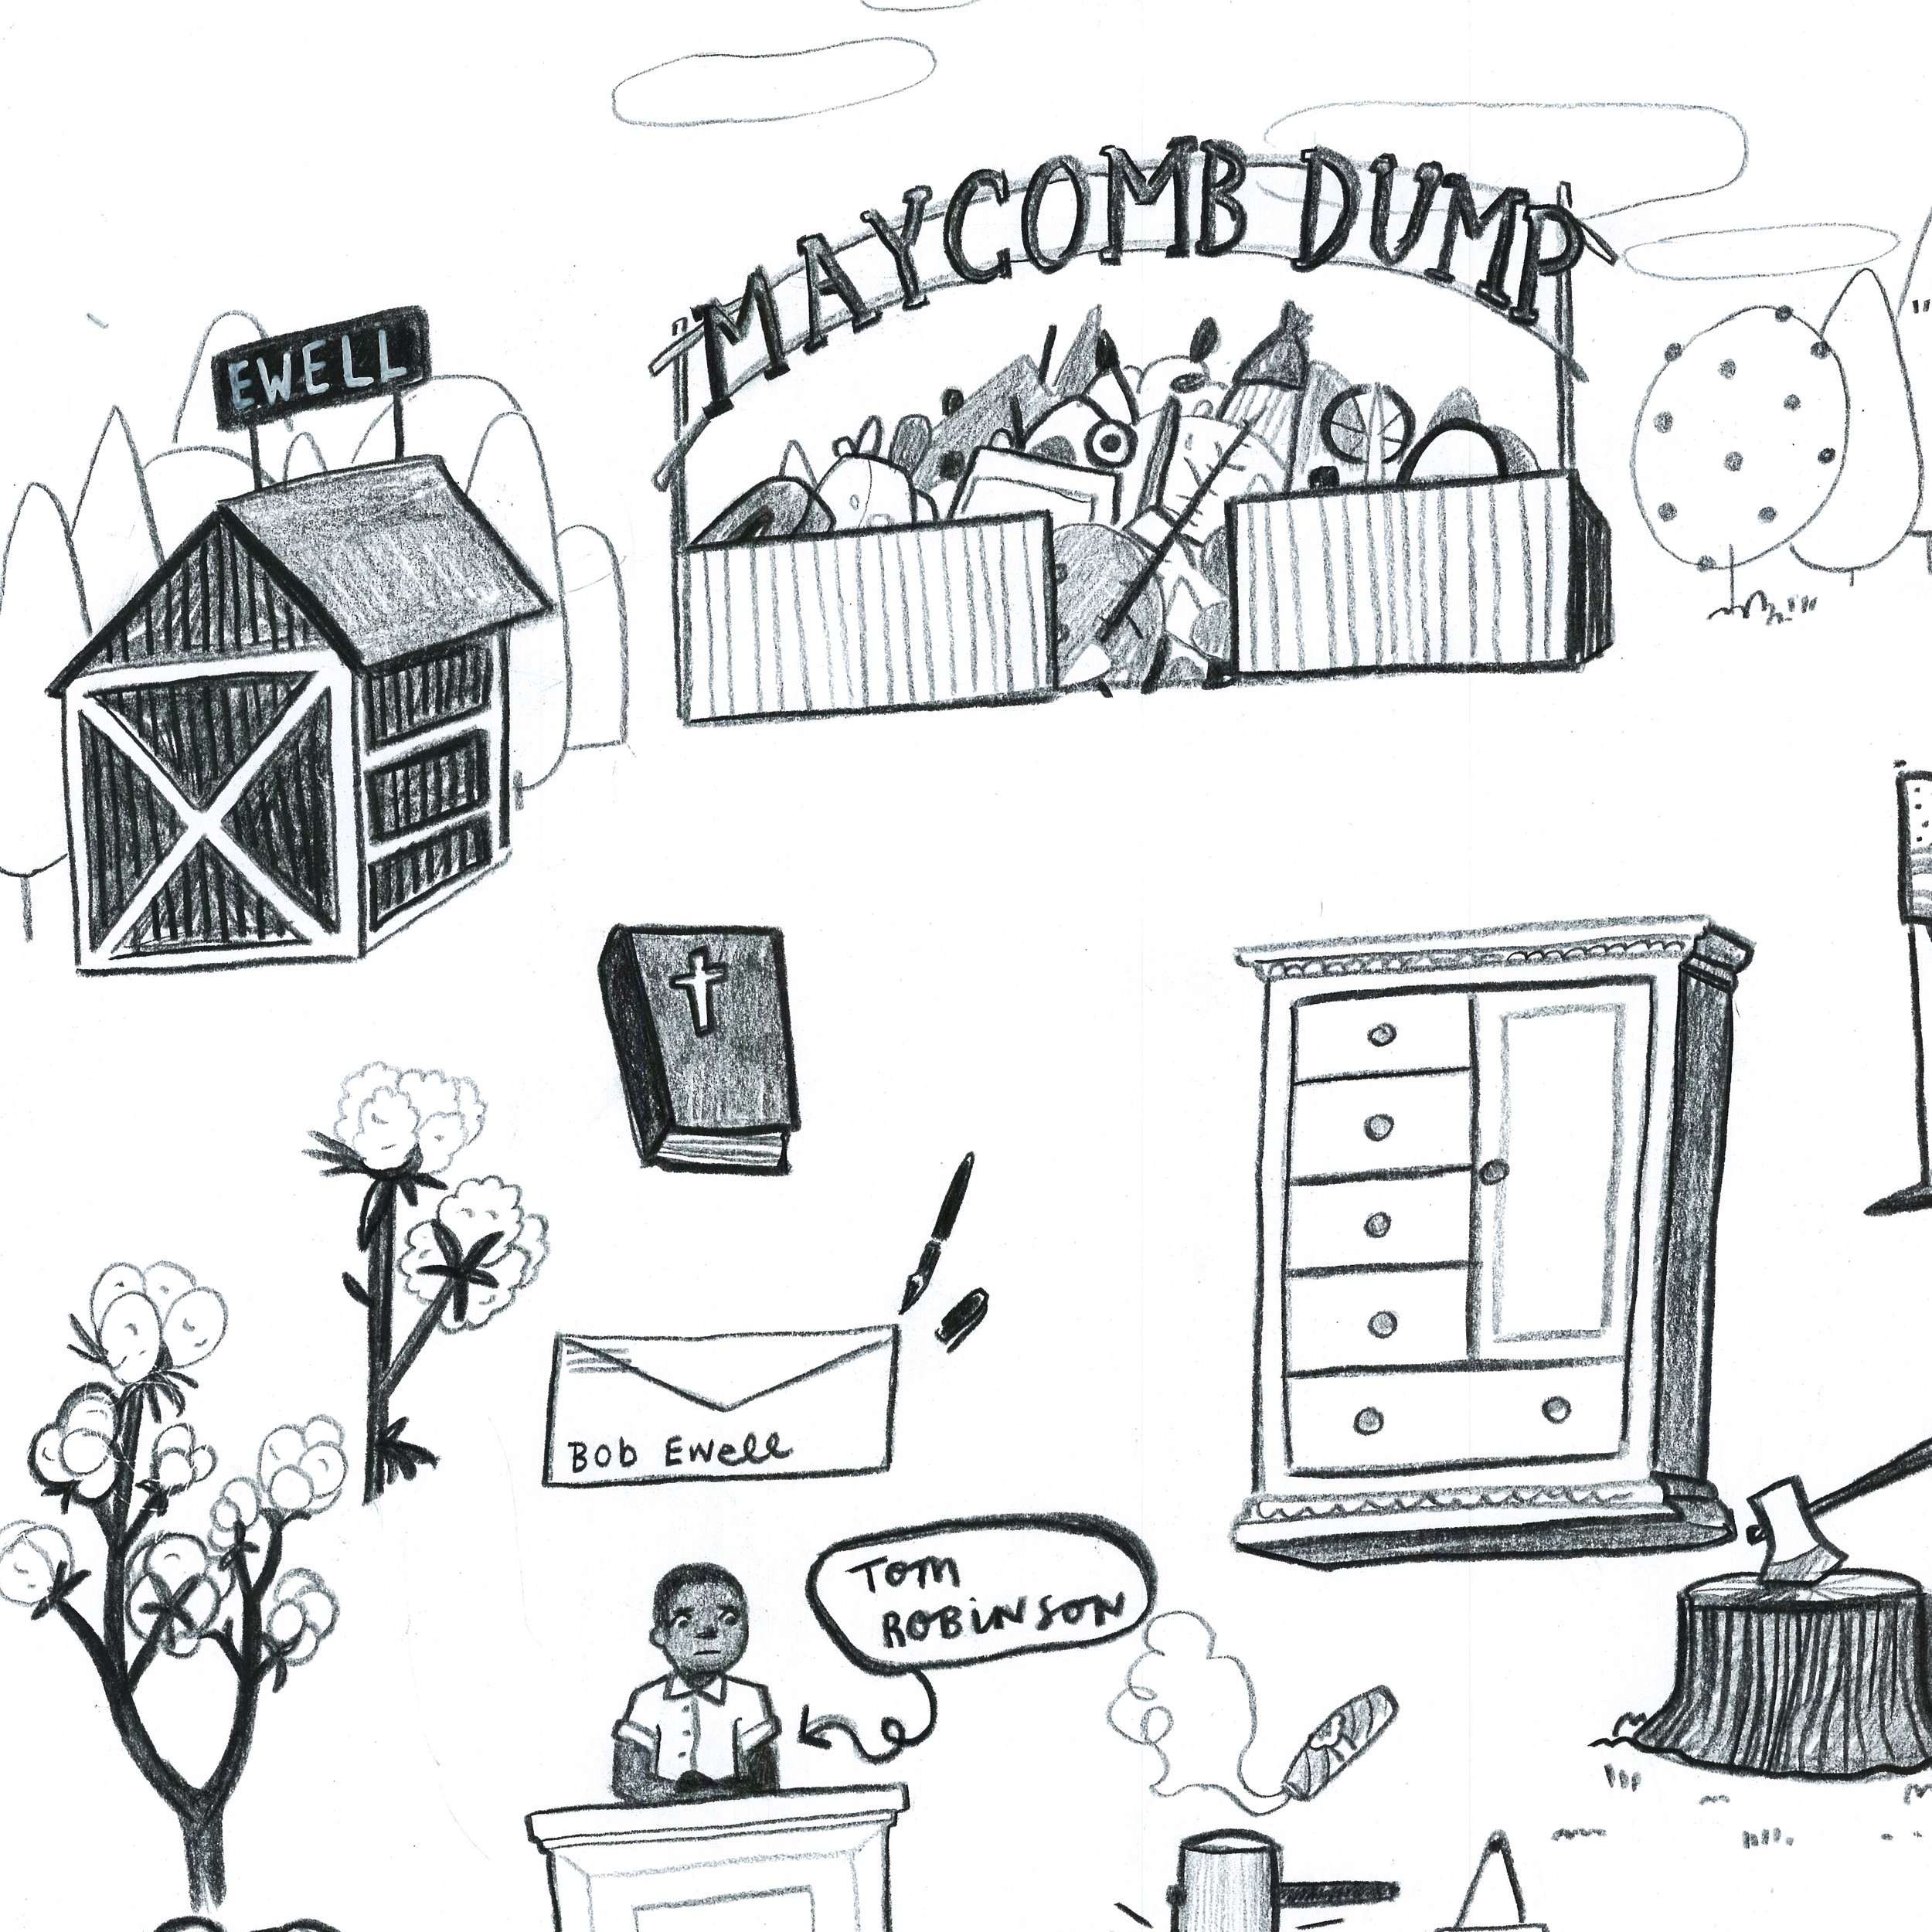 MAYCOMB DUMP
EWELL
Bob Ewell
TOM
ROBINSON